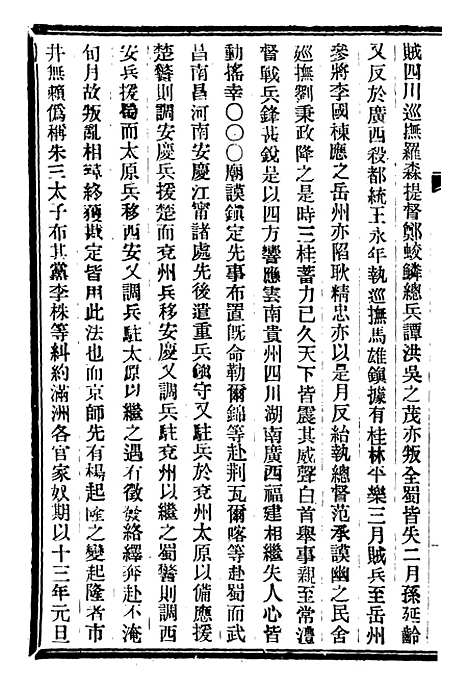 賊四川巡撫羅森提督鄭蛟麟總兵譚洪吳之茂亦叛全蜀皆失二月孫延齡
又反於廣西殺都統王永年執巡撫馬雄鎭據有桂林平樂三月賊兵至岳州
參將李國棟應之岳州亦陷耿精忠亦以是月反紿執總督范承謨幽之民舍
巡撫劉秉政降之是時三桂蓄力已久天下皆震其威聲白首舉事親至常澧
督戰兵鋒甚銳是以四方響應雲南貴州四川湖南廣西福建相繼失人心皆
動搖幸〇〇〇廟謨鎭定先事布置旣命勒爾錦等赴荆瓦爾喀等赴蜀而武
昌南昌河南安慶江甯諸處先後遣重兵鎭守又駐兵於兗州太原以備應援
楚警則調安慶兵援楚而兗州兵移安慶又調兵駐兗州以繼之蜀警則調西
安兵援蜀而太原兵移西安又調兵駐太原以繼之遇有徵發絡繹奔赴不淹
旬月故叛亂相尋終獲戡定皆用此法也而京師先有楊起隆之變起隆者市
井無賴僞稱朱三太子布其黨李株等糾約滿洲各官家奴期以十三年元旦